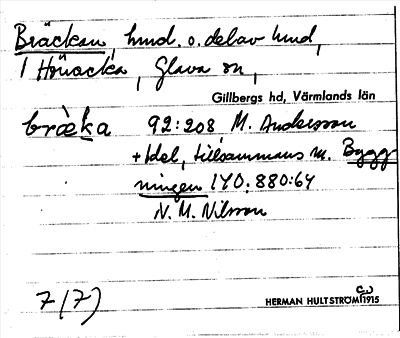 Bräckan, hmd. o. del av hmd,
1 Hönacka, Glava sn,
Gillbergs hd, Värmlands län
bræ̀ka 92:208 M. Andersson
+ 1 del, tillsammans m. Bygg-
ningen 140.880:64
N. M. Nilsson
7 (7)
HERMAN HULTSTRÖM 1915